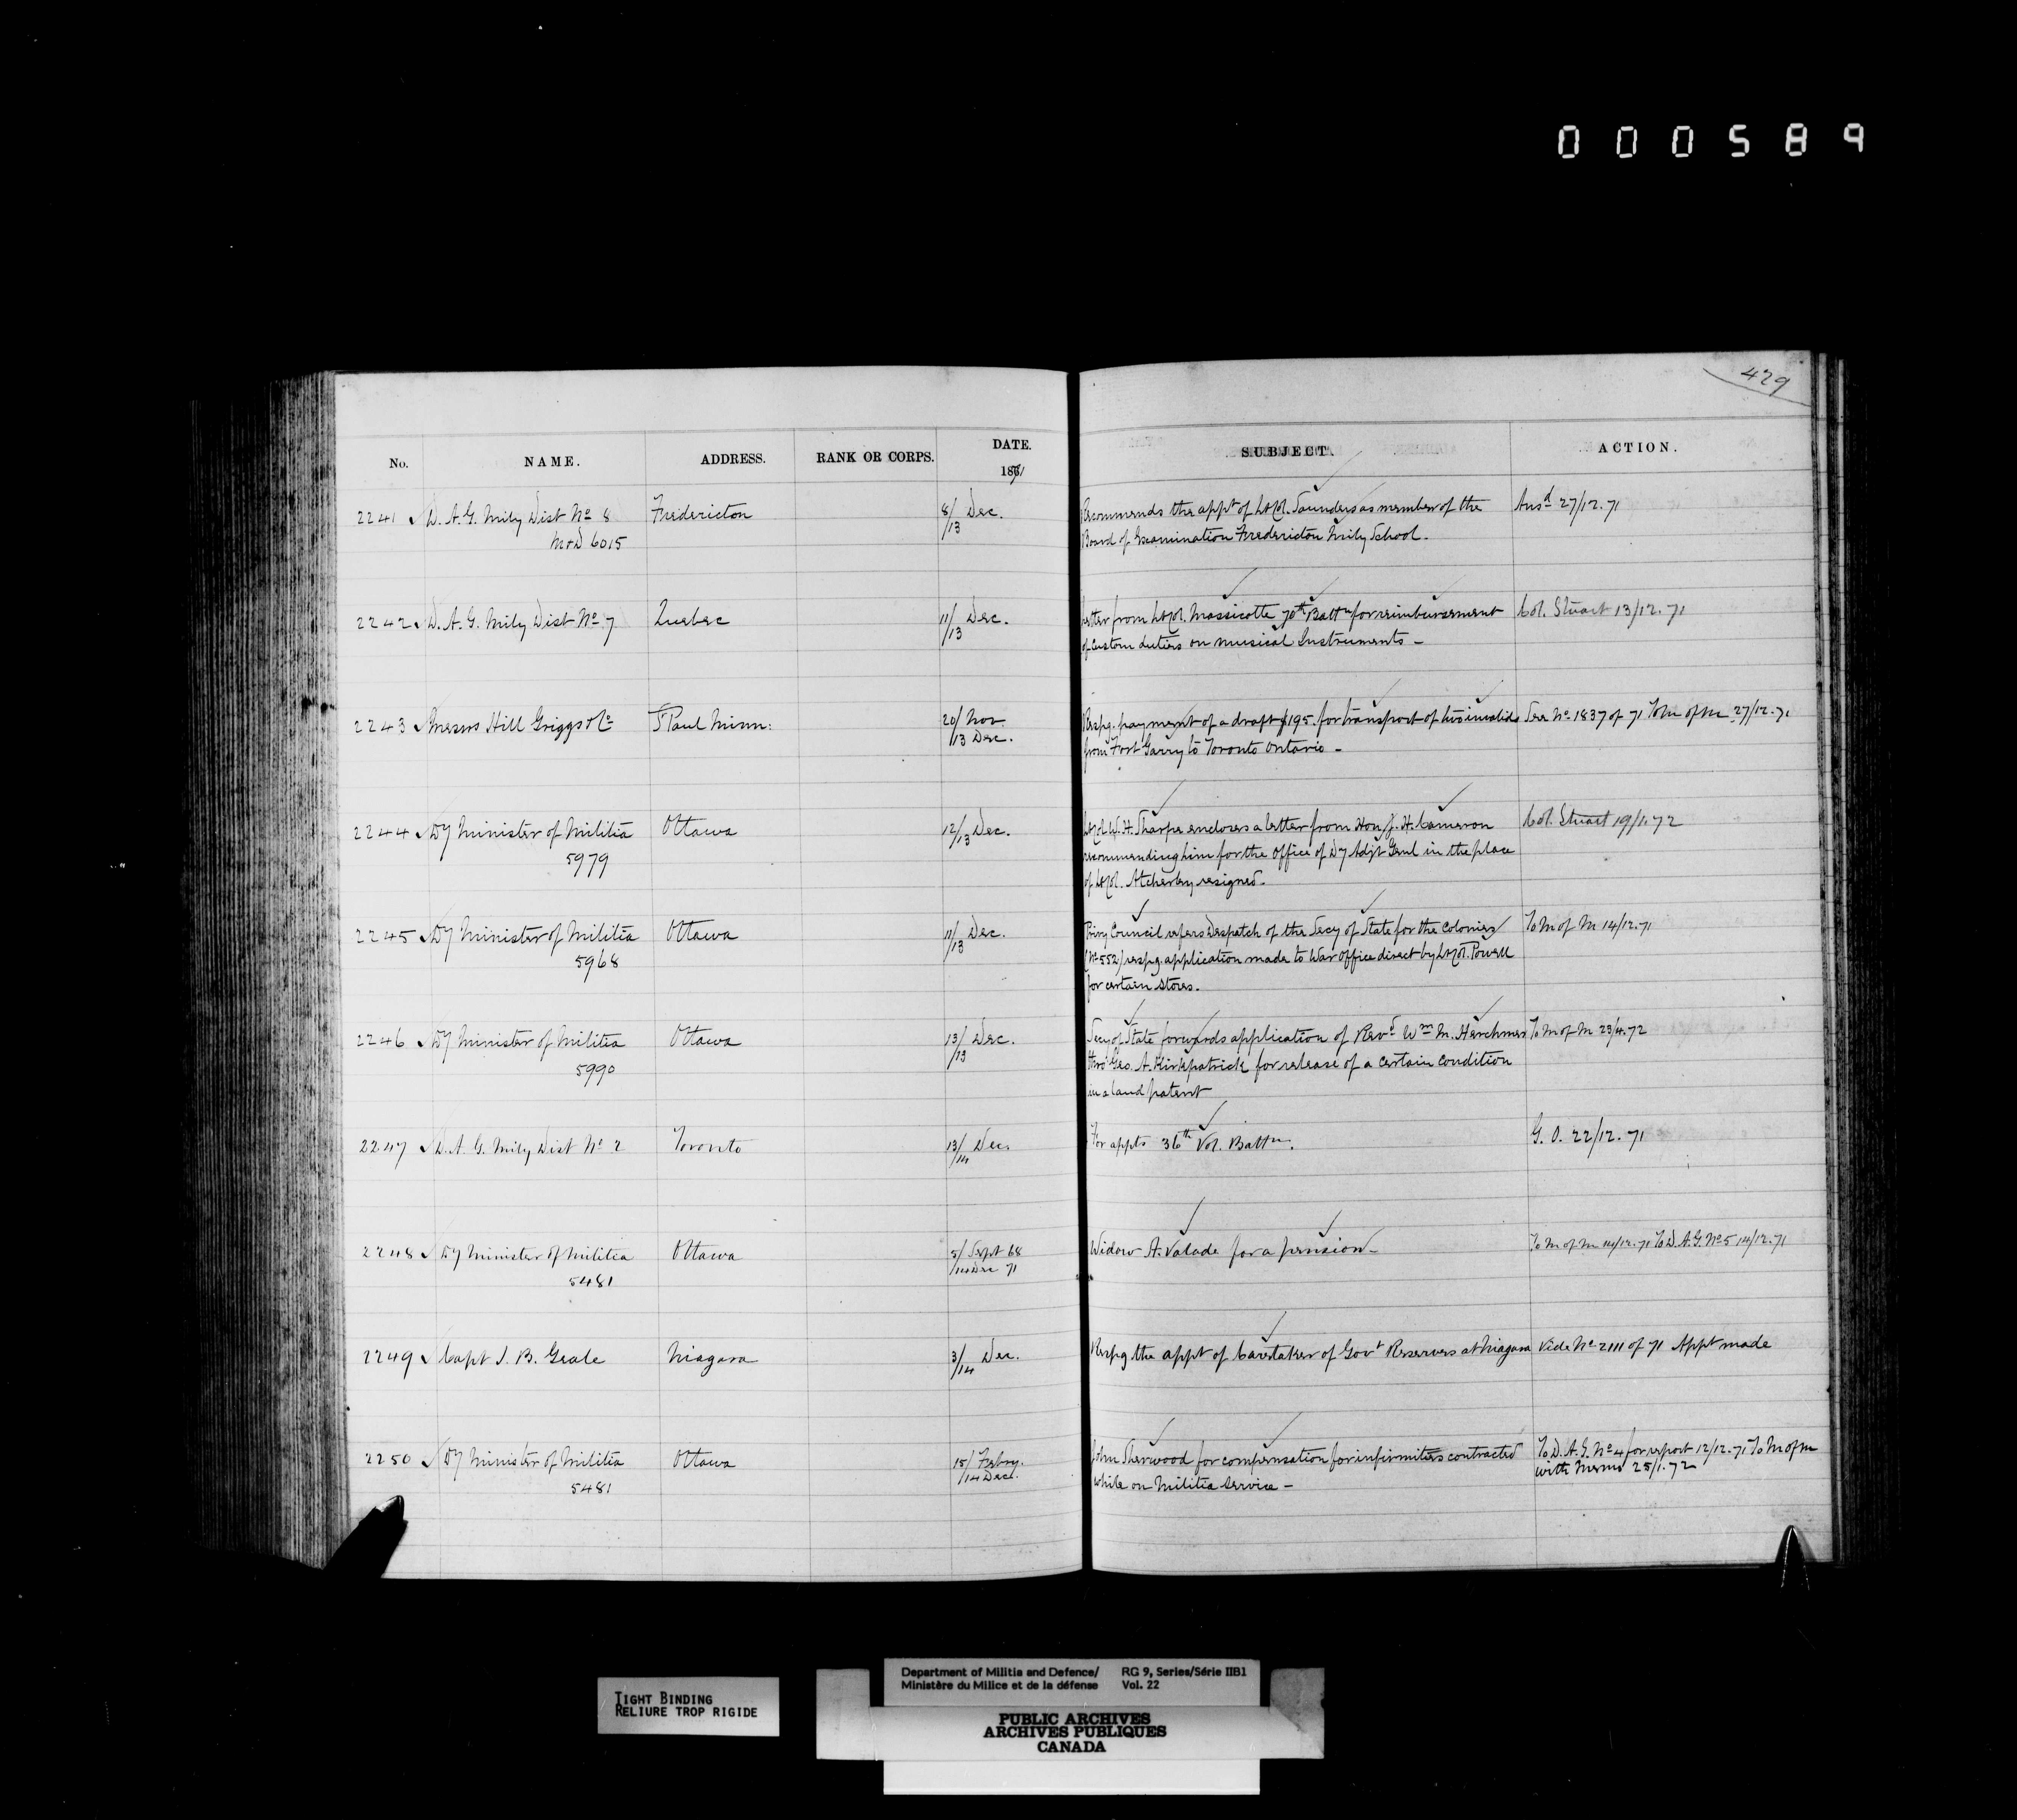 000589
429
No. NAME. ADDRESS. RANK OR CORPS. DATE. 1871 SUBJECT. ACTION.
2241 D. A. G. Mily Dist No 8 Fredericton 8/13 Dec. Recommends the appt of Lt Col. Saunders as member of the Ansd 27/12.71
M&D 6015 Board of Examination Fredericton Mily School.
2242 D. A. G. Mily Dist No 7 Quebec 11/13 Dec. Letter from Lt Col. Massicotte 70th Battn for reimbursement Col. Stuart 13/12.71
of custom duties on musical Instruments -
2243 Messrs Hill Griggs & Co St Paul Minn: 20/ Nov. Respg. payment of a draft $195. for transport of two invalids See No 1837 of 71 To M of M 27/12.71
/13 Dec. from Fort Garry to Toronto Ontario -
2244 Dy Minister of Militia Ottawa 12/13 Dec. Lt Col W. H. Tharpe encloses a letter from Hon J. H. Cameron Col. Stuart 19/1.72
5979 recommending him for the office of Dy Adjt Genl in the place
of Lt Col. Atcherley resigned.
2245 Dy Minister of Militia Ottawa 11/13 Dec. Privy Council refers Despatch of the Secy of State for the Colonies To M of M 14/12.71
5968 (No 552) respg. application made to War Office direct by Lt Col. Powell
for certain stores.
2246 Dy Minister of Militia Ottawa 13/13 Dec. Secy of State forwards application of Revd Wm M. Herchmer To M of M 23/4.72
5990 thro' Geo. A. Kirkpatrick for release of a certain condition
in a land patent
2247 D. A. G. Mily Dist No 2 Toronto 13/14 Dec. For appts 36th Vol. Battn. G. O. 22/12.71
2248 Dy Minister of Militia Ottawa 5/ Sept 68 Widow A. Valade for a pension - To M of M 14/12.71 To D. A. G. No 5 14/12.71
5481 /14 Dec 71
2249 Capt J. B. Geale Niagara 3/14 Dec. Respg the appt of Caretaker of Govt Reserves at Niagara Vide No 2111 of 71 Appt made
2250 Dy Minister of Militia Ottawa 15/ Febry. John Sherwood for compensation for infirmities contracted To D. A. G. No 4 for report 12/12.71 To M of M
5481 /14 Dec. while on Militia Service - with Memo 25/1.72
TIGHT BINDING
RELIURE TROP RIGIDE
Department of Militia and Defence/ RG 9, Series/Série IIB1
Ministère du Milice et de la défense Vol. 22
PUBLIC ARCHIVES
ARCHIVES PUBLIQUES
CANADA